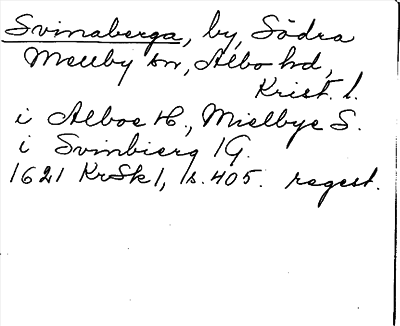 Svinaberga, by, Södra
Mellby sn, Albo hd,
Krist. l.
i Alboe H., Mielbye S.
i Svinbierg 1G.
1621 KrSk1, s. 405. regest.